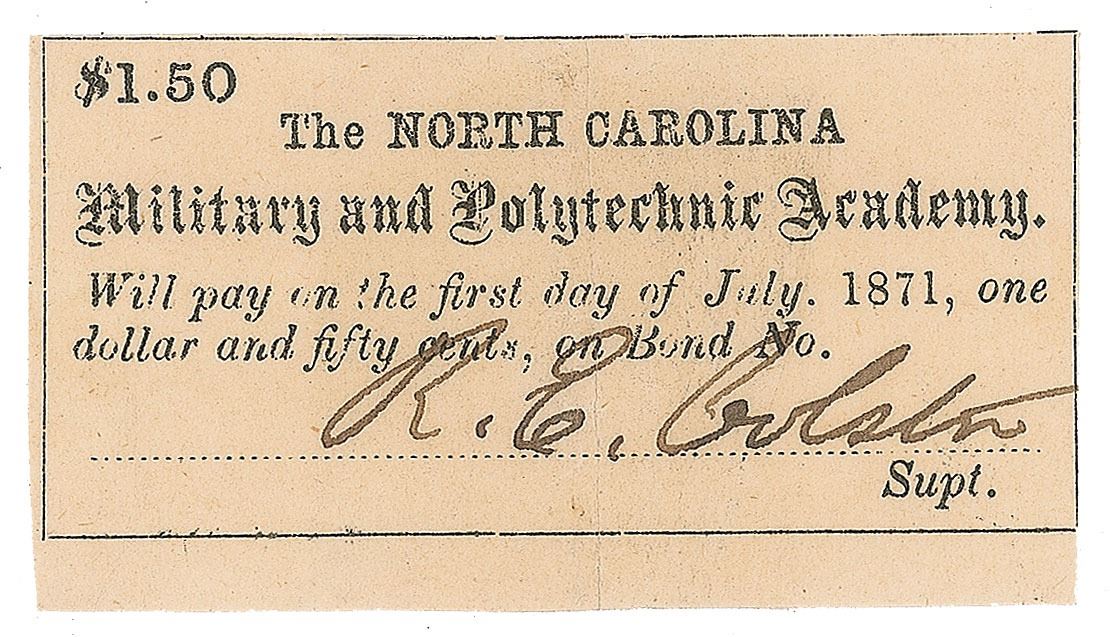 $1.50
The NORTH CAROLINA
Military and Polytechnic Academy.
Will pay on the first day of July. 1871, one
dollar and fifty cents, on Bond No.
R. E. Colston
Supt.